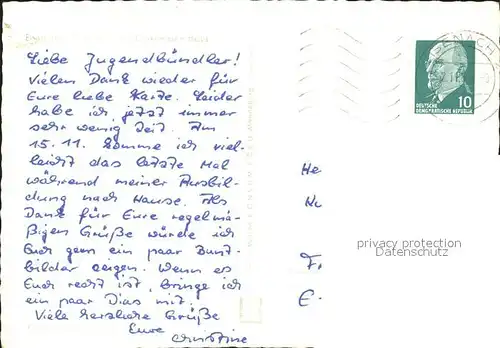 Liebe Jugendbündler!
Vielen Dank wieder für
Eure liebe Karte. Leider
habe ich jetzt immer
sehr wenig Zeit. Am
15.11. komme ich viel-
leicht das letzte Mal
während meiner Ausbil-
dung nach Hause. Als
Dank für Eure regelmä-
ßigen Grüße würde ich
Euch gern ein paar Bunt-
bilder zeigen. Wenn es
Euch recht ist, bringe ich
ein paar Dias mit.
Viele herzliche Grüße
Eure
Christine
DEUTSCHE
DEMOKRATISCHE REPUBLIK
10
He
F.
E.
privacy protection
Datenschutz